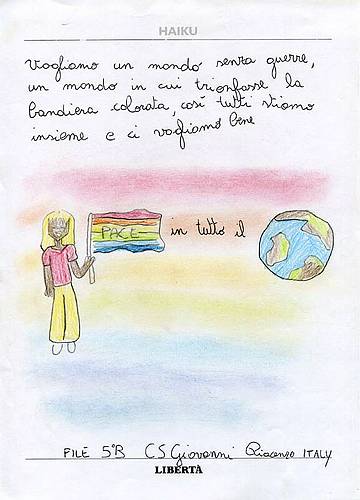 HAIKU
Vogliamo un mondo senza guerre,
un mondo in cui trionfasse la
bandiera colorata, così tutti stiamo
insieme e ci vogliamo bene
PACE in tutto il
FILE 5°B CS Giovanni Piacenza ITALY
LIBERTÀ